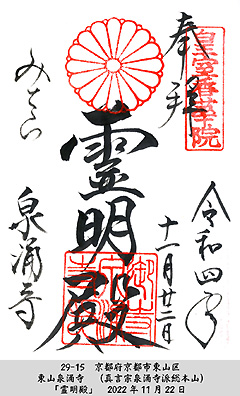 奉拝
皇室香華院
霊明殿
令和四年
十一月廿二日
みてら
泉涌寺
29-15 京都府京都市東山区
東山泉涌寺 (真言宗泉涌寺派総本山)
「霊明殿」 2022年11月22日